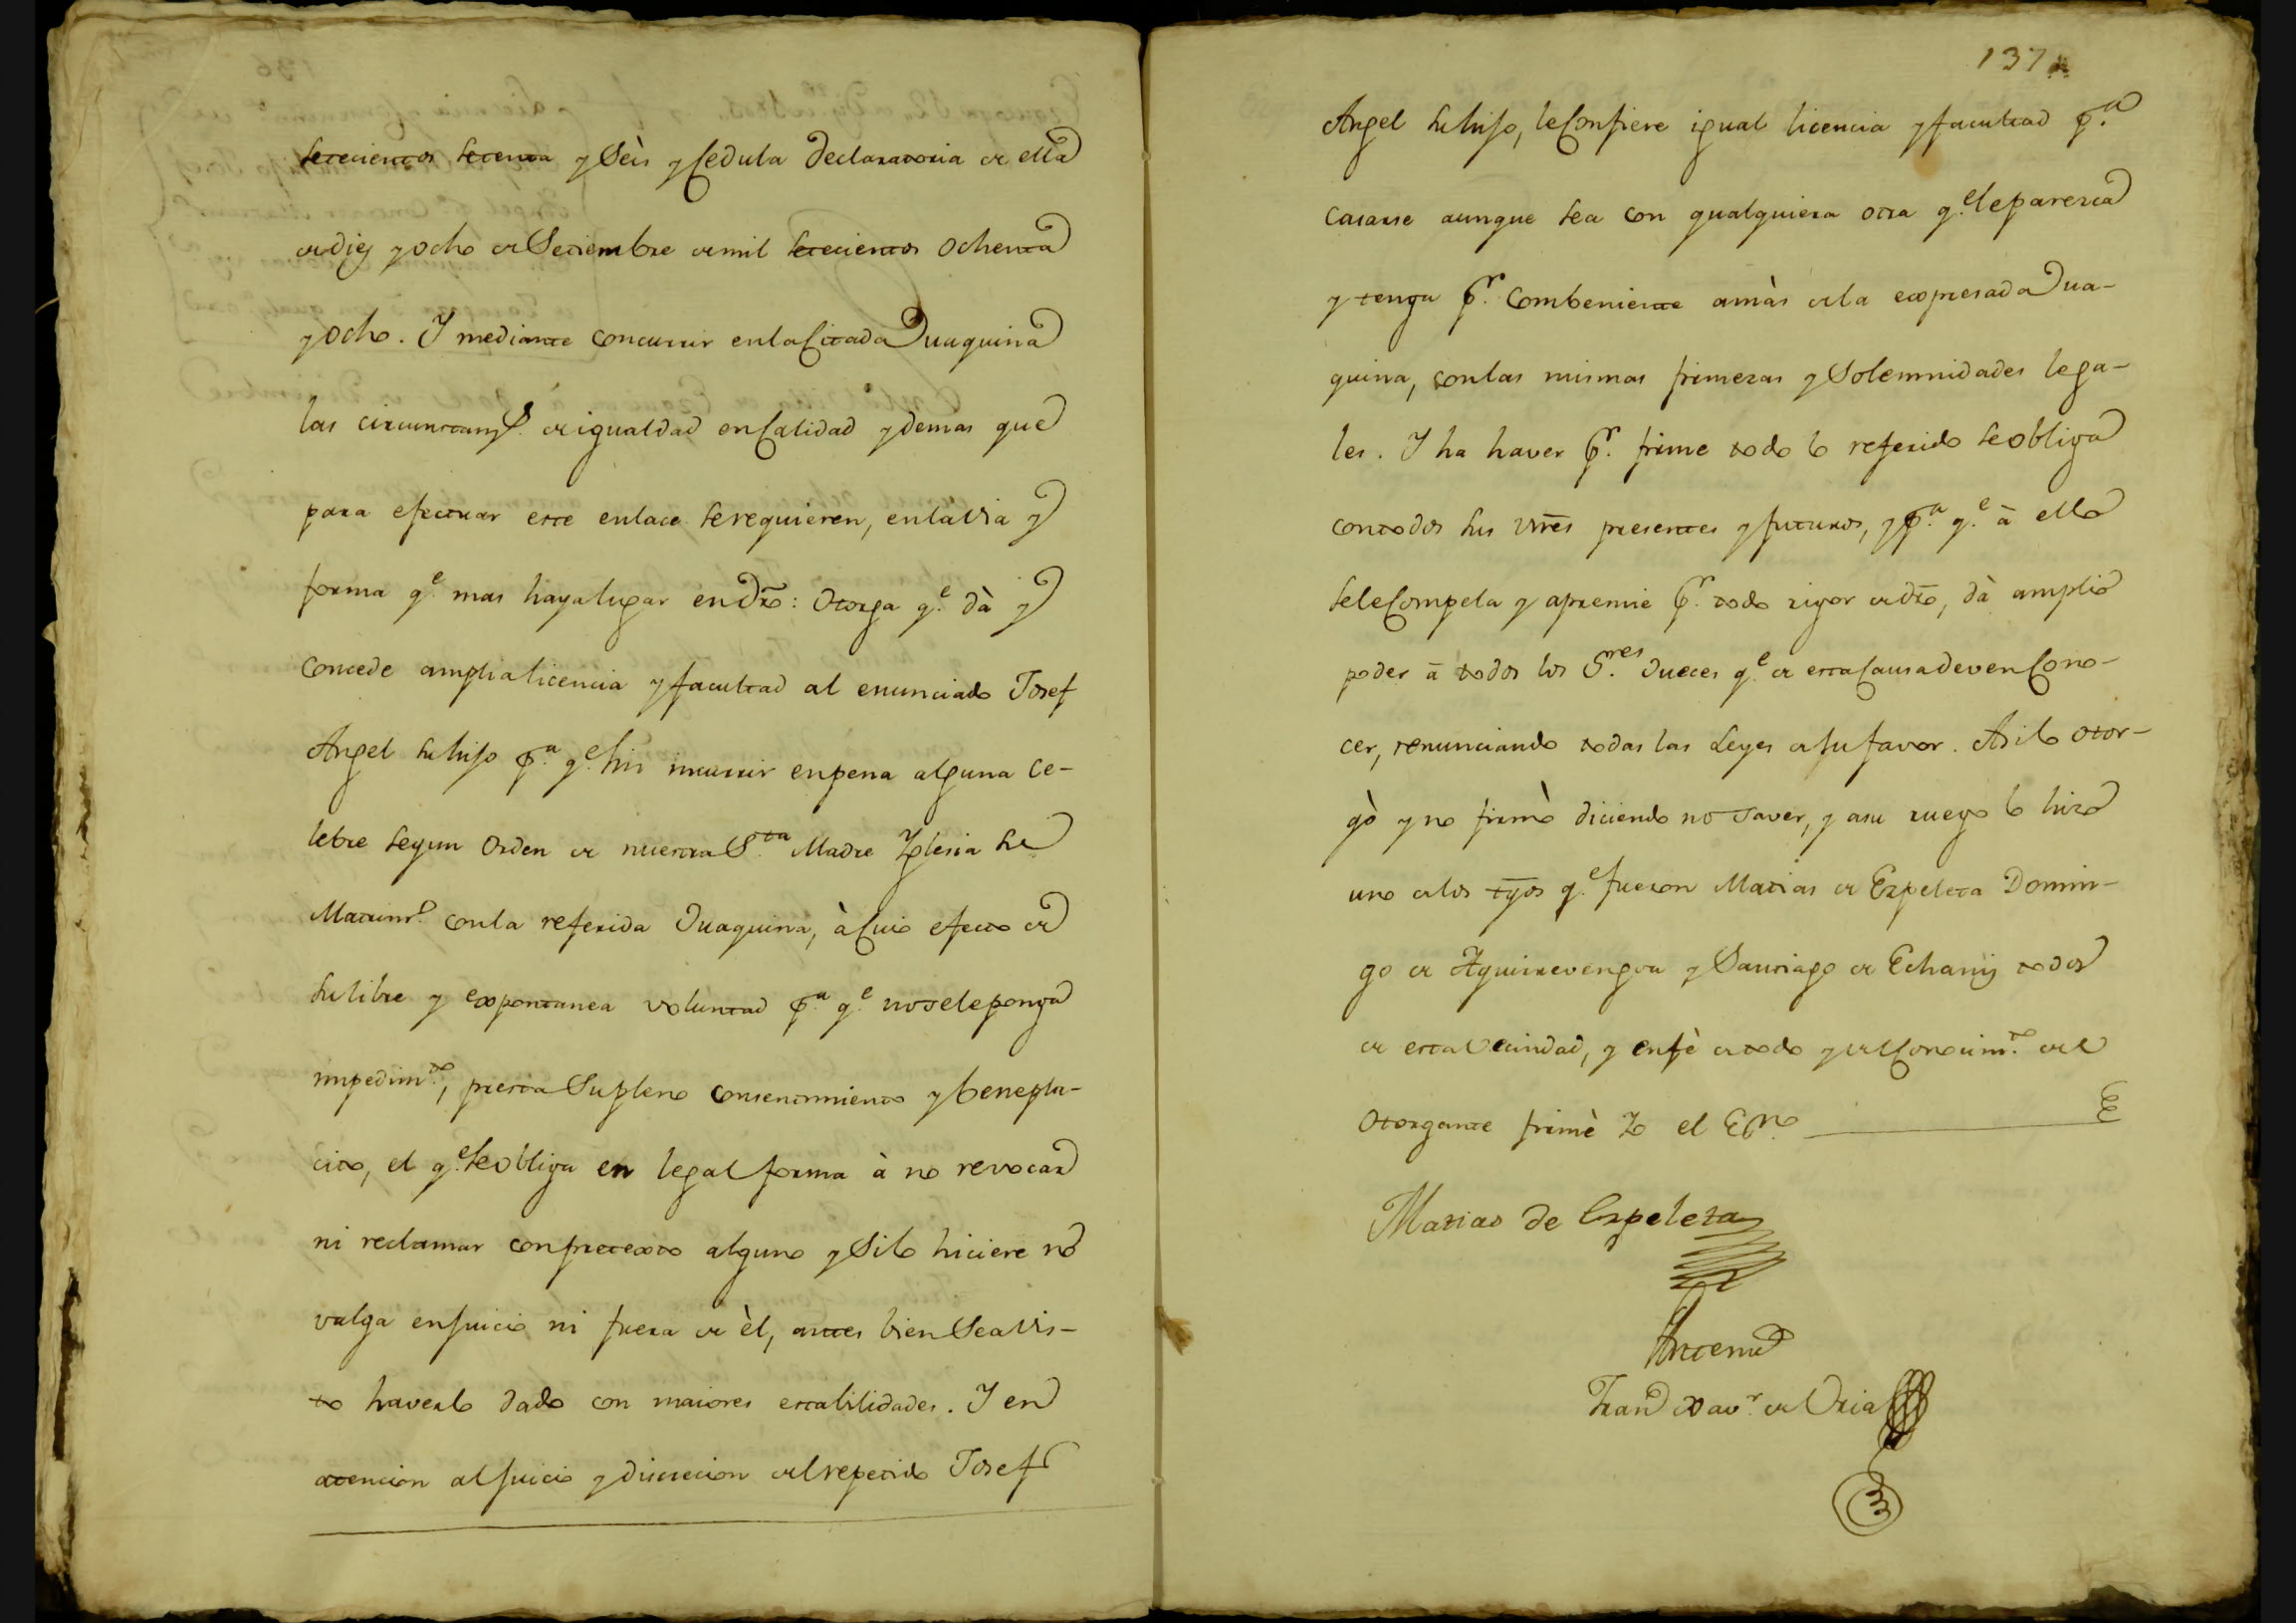 setecientos setenta y Seis y Cedula declaratoria de ella
de diez y ocho de Setiembre de mil setecientos ochenta
y ocho. I mediante concurrir en la Citada Juaquina
las circunstanz.s de igualdad en Calidad y demas que
para efectuar este enlace se requieren, en la via y
forma q.e mas haya lugar en dro: Otorga q.e dà y
concede amplia licencia y facultad al enunciado Josef
Angel su hijo p.a q.e sin incurrir en pena alguna ce-
lebre segun Orden de nuestra S.ta Madre Yglesia su
Matrim.o con la referida Juaquina, à Cuio efecto de
su libre y expontanea voluntad p.a q.e no se le ponga
impedim.to, presta Su pleno consentimiento y benepla-
cito, el q.e se obliga en legal forma à no revocar
ni reclamar con pretexto alguno y Si lo hiciere no
valga en juicio ni fuera de èl, antes bien Sea vis-
to haverlo dado con maiores estabilidades. I en
atencion al juicio y discrecion del repetido Josef
137
Angel su hijo, le Confiere igual licencia y facultad p.a
casarse aunque sea con qualquiera otra q.e le parezca
y tenga p.r combeniente amàs de la expresada Jua-
quina, con las mismas firmezas y Solemnidades lega-
les. I ha haver p.r firme todo lo referido se obliga
con todos sus vnes presentes y futuros, y p.a q.e à ello
se le Compela y apremie p.r todo rigor de dro, dà amplio
poder à todos los S.res Jueces q.e de esta Causa deven Cono-
cer, renunciando todas las Leyes de su favor. Asi lo otor-
gò y no firmò diciendo no saver, y a su ruego lo hizo
uno de los tgos q.e fueron Matias de Ezpeleta Domin-
go de Aguirrevengoa y Santiago de Echaniz todos
de esta Vecindad, y en fè de todo y del Conocim.to del
Otorgante firmè Yo el Es.no
Matias de Ezpeleta
Ante mi
Fran.co Xav.r de Oria